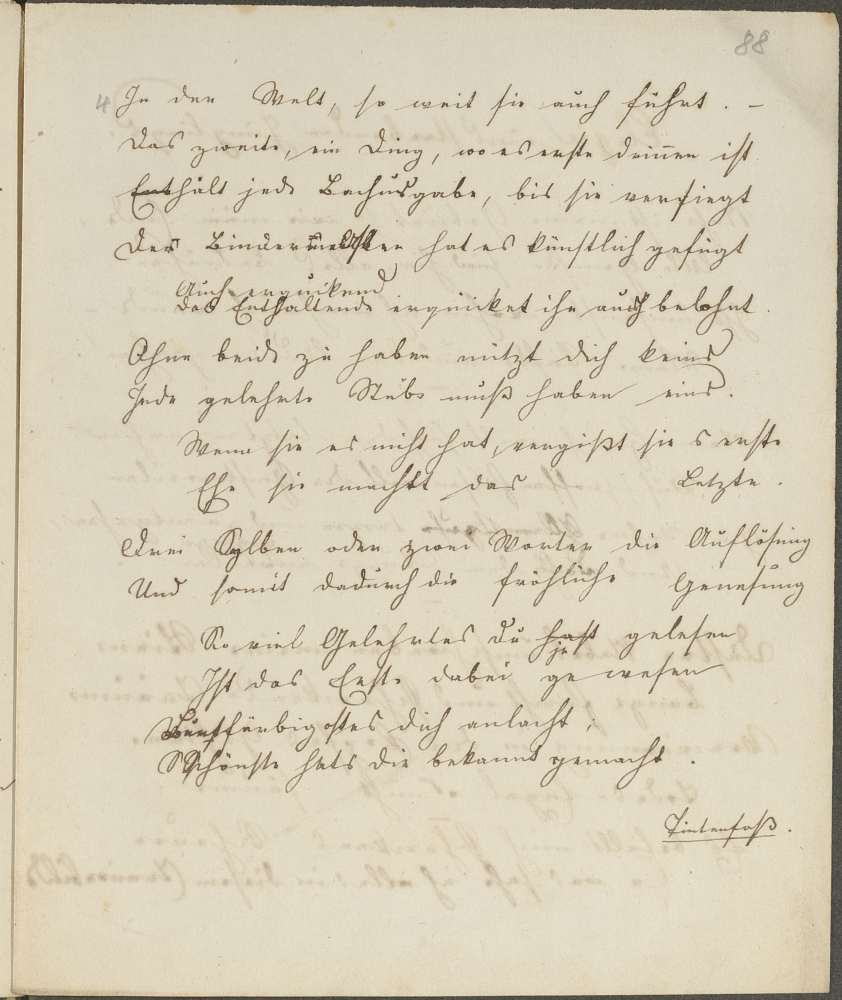 88
4 In der Welt, so weit sie auch führt. –
Das zweite, ein Ding, wo es erste drinnen ist
Enthält jede Bachusgabe, bis sie versiegt
Der Binder hat es künstlich gefügt
Auch erquikend
Das Enthaltende erquicket ihn auch belohnt.
Ohne beide zu haben nützt dich keins
Jede gelehrte Stube muß haben eins.
Wenn sie es nicht hat, vergißt sie s erste
Ehe sie macht das Letzte.
Drei Sylben oder zwei Worter die Auflösung
Und somit dadurch die fröhliche Genesung
So viel Gelehrtes du hast gelesen
je
Ist das Erste dabei gewesen
Buntfärbig oftes dich anlacht;
Schönste hats dir bekannt gemacht.
Tintenfaß.